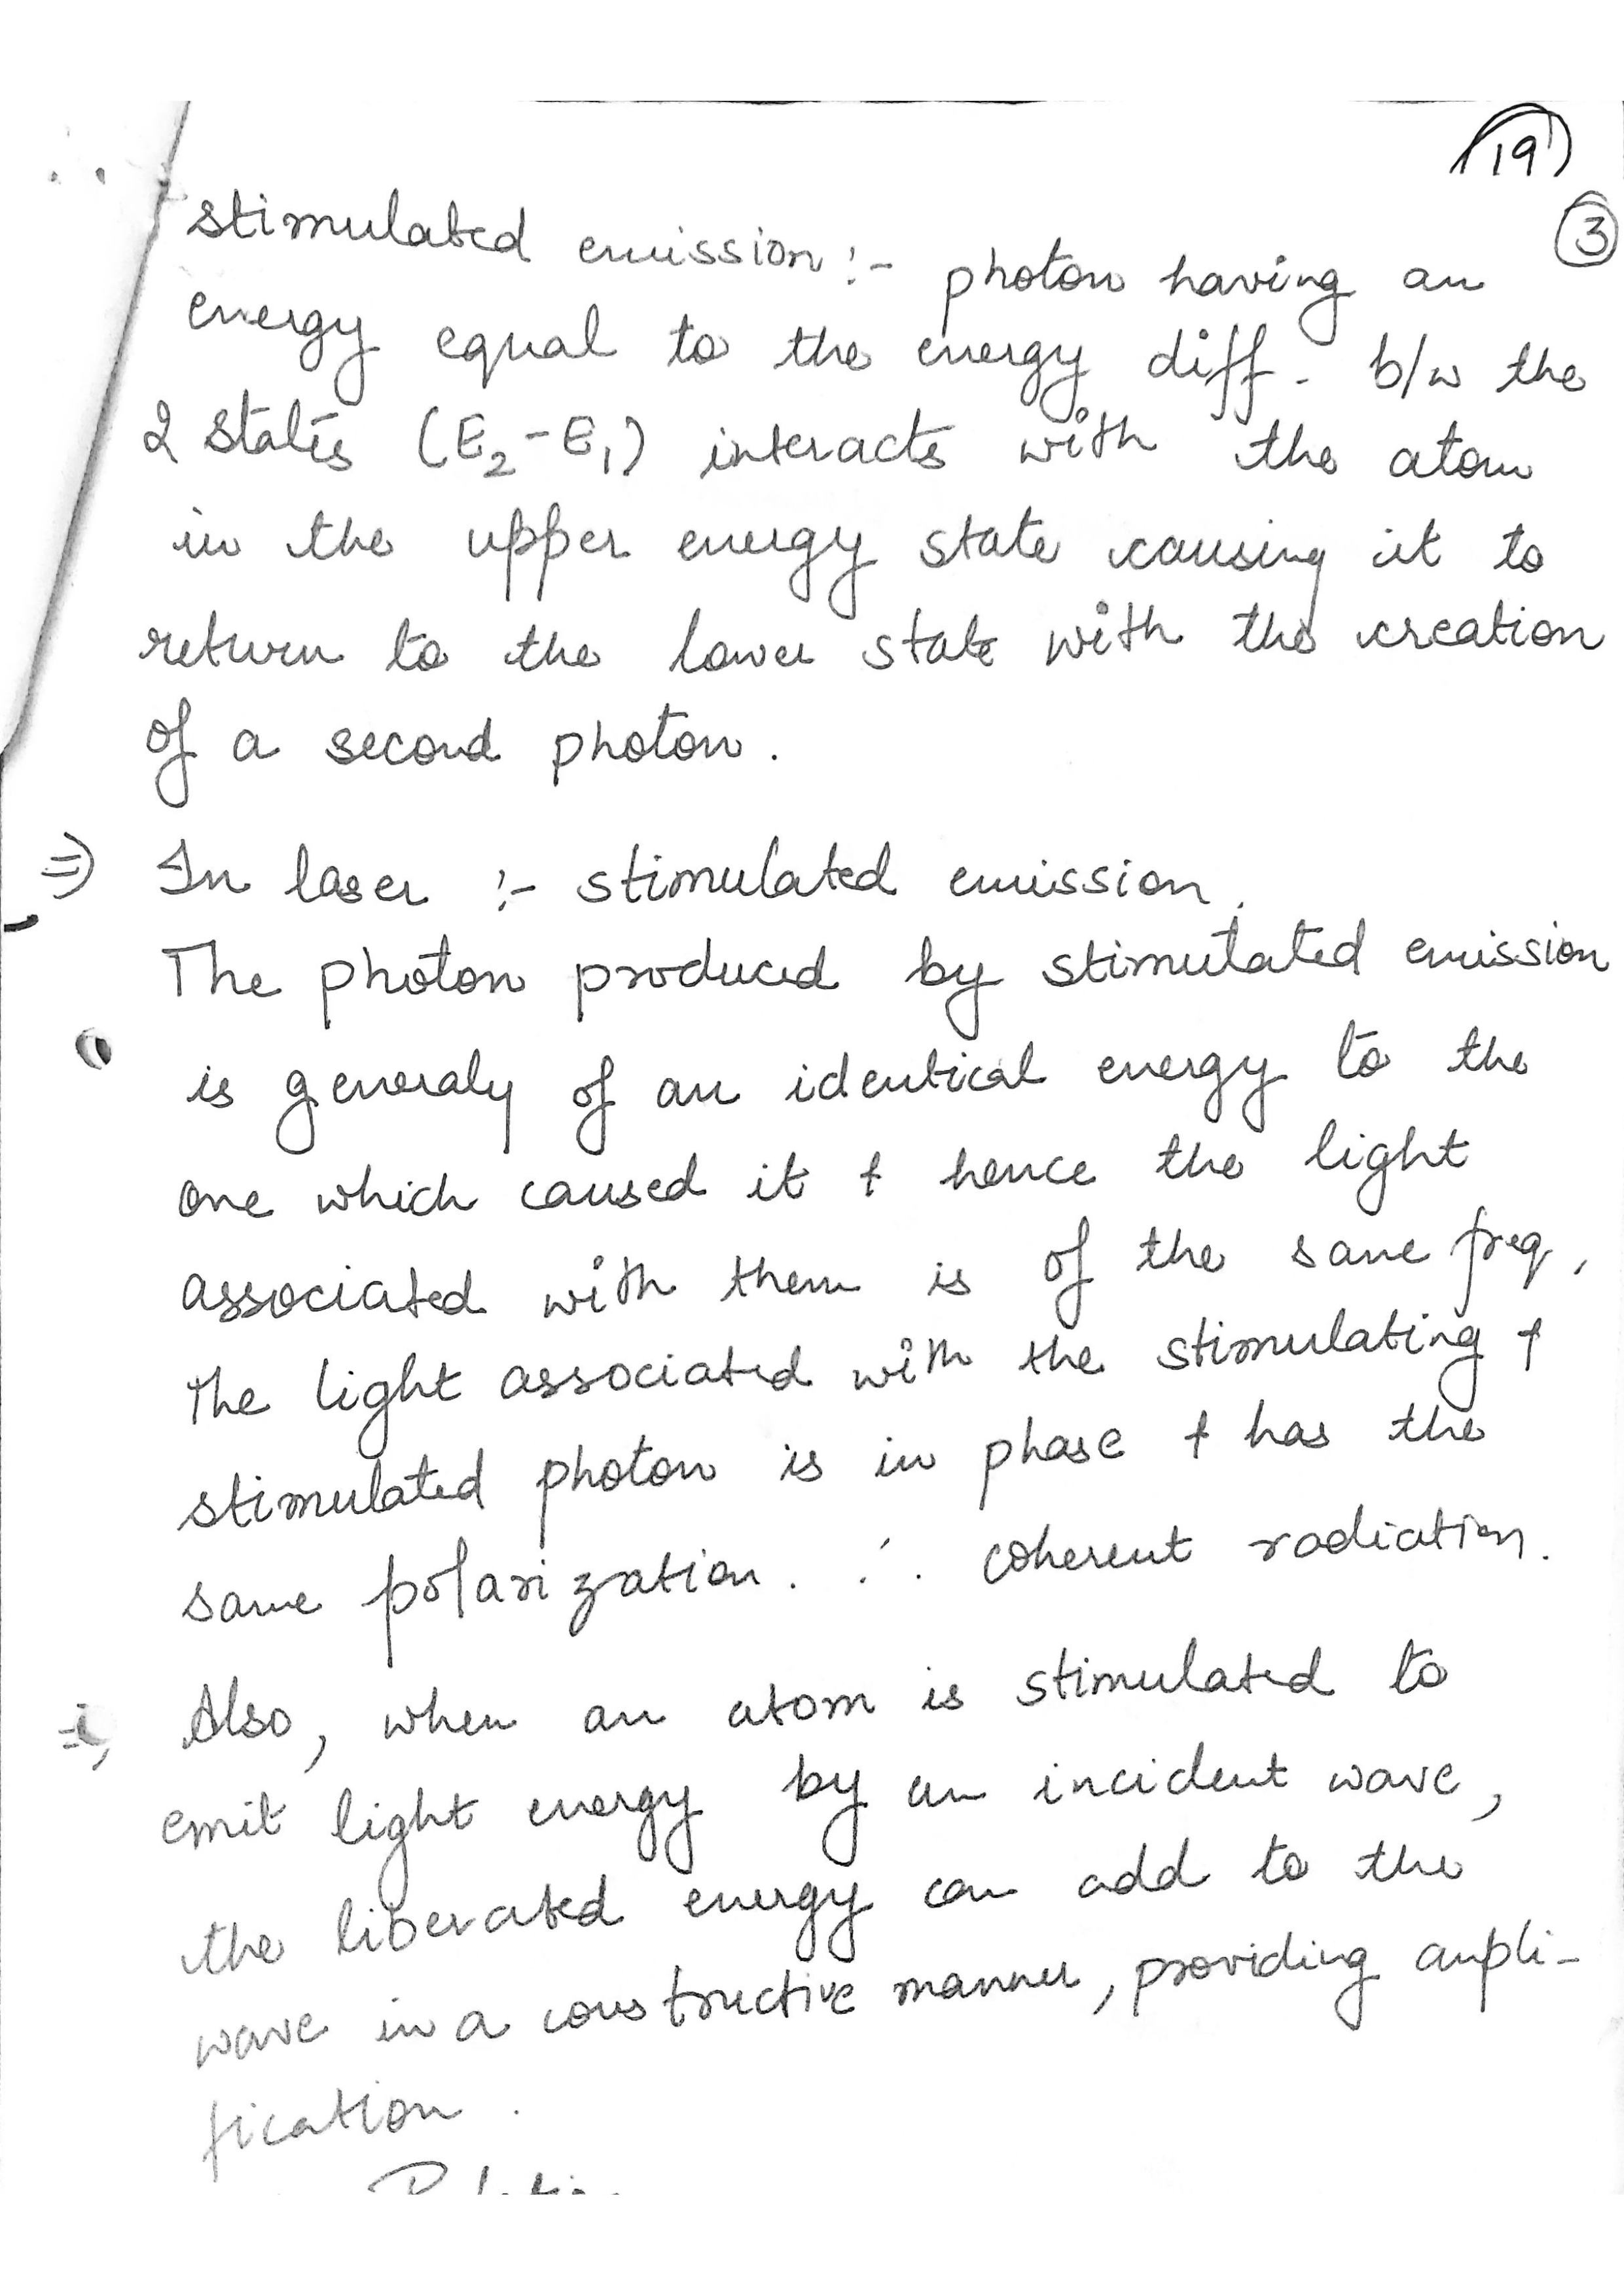 19
3
stimulated emission :- photon having an
energy equal to the energy diff. b/w the
2 states (E₂-E₁) interacts with the atom
in the upper energy state causing it to
return to the lower state with the creation
of a second photon.
⇒ In laser :- stimulated emission.
The photon produced by stimutated emission
is generaly of an identical energy to the
one which caused it & hence the light
associated with them is of the same freq,
The light associated with the stimulating &
stimulated photon is in phase & has the
same polarization. ∴ coherent radiation.
Also, when an atom is stimulated to
emit light energy by an incident wave,
the liberated energy can add to the
wave in a constructive manner, providing ampli-
fication.